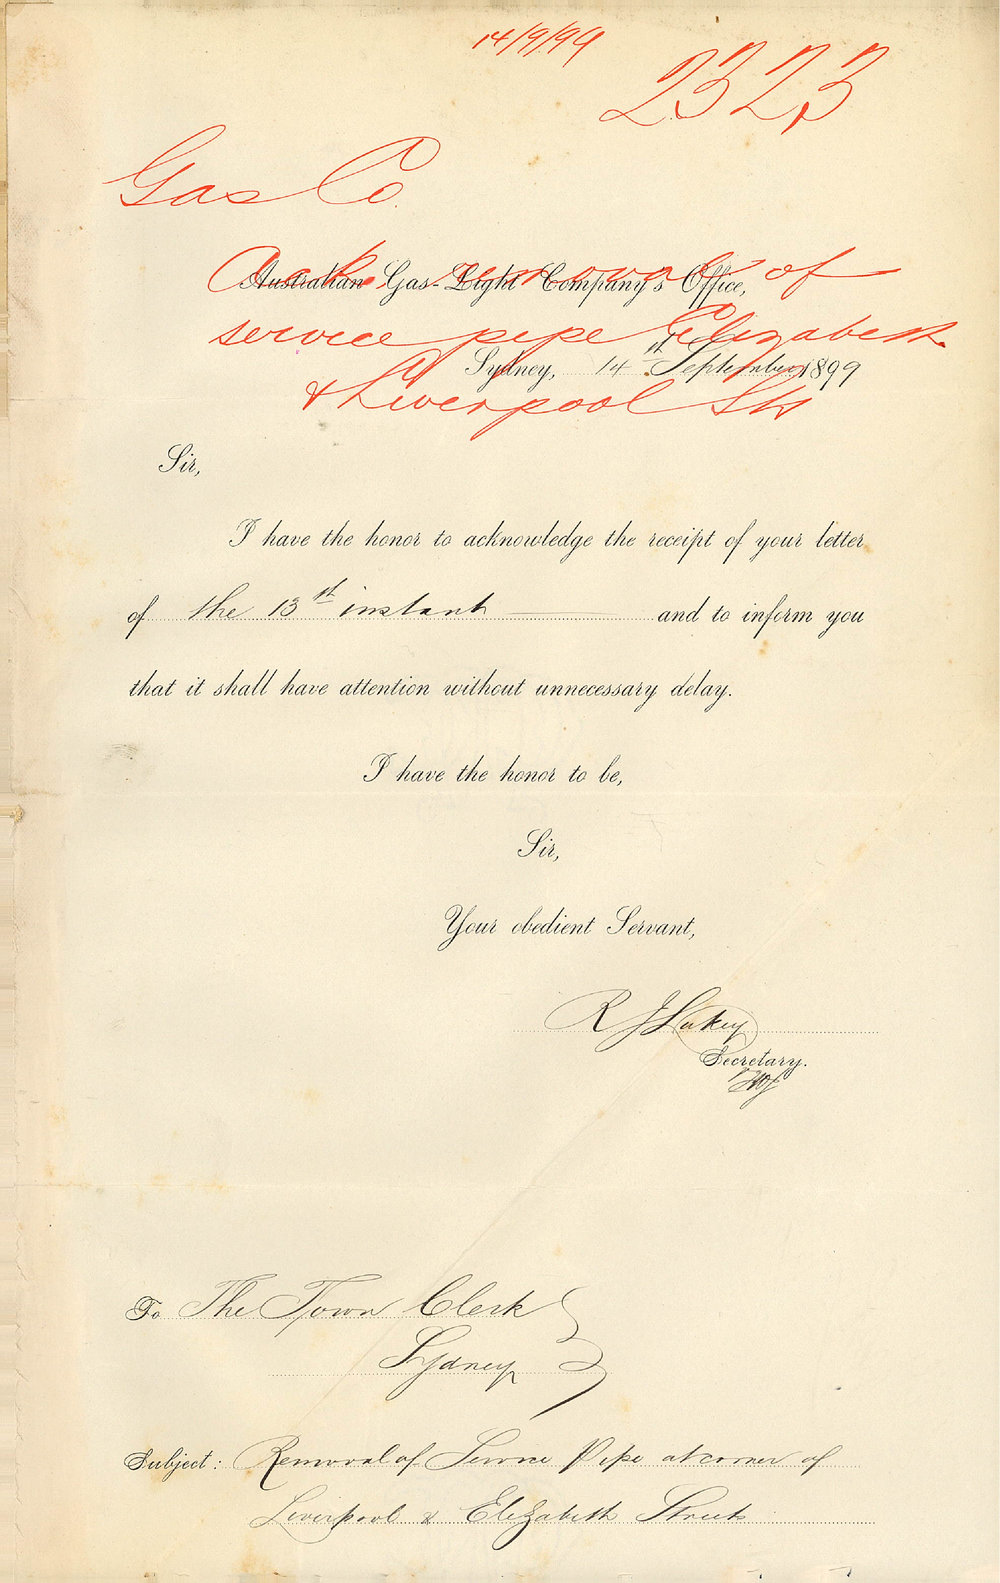 14/9/99
2323
Gas Co.
Ask removal of
Australian Gas-Light Company's Office,
service pipe Elizabeth
Sydney, 14th September 1899
& Liverpool Sts
Sir,
I have the honor to acknowledge the receipt of your letter
of the 13st instant and to inform you
that it shall have attention without unnecessary delay.
I have the honor to be,
Sir,
Your obedient Servant,
R J Lukey
Secretary.
To The Town Clerk
Sydney
Subject: Removal of Service Pipe at corner of
Liverpool & Elizabeth Streets